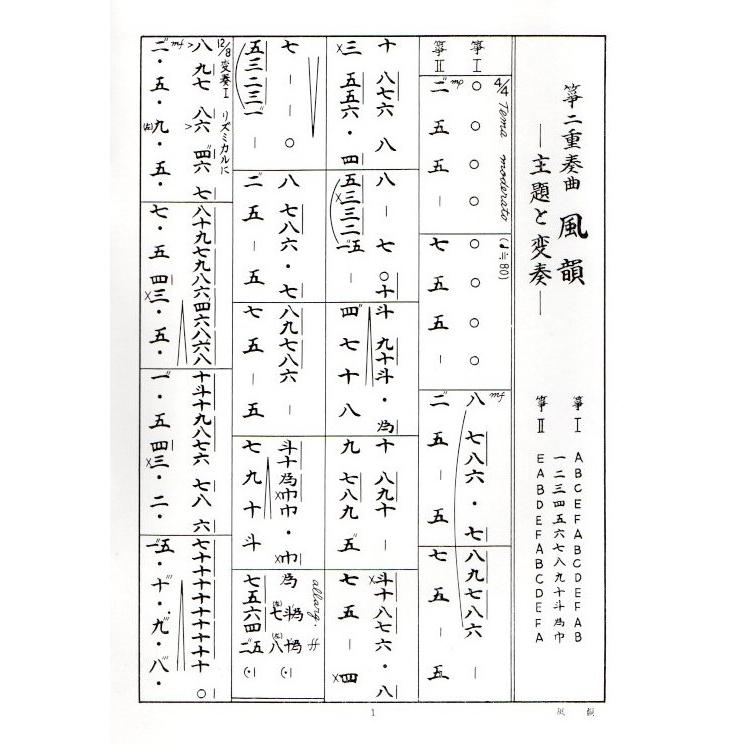 箏二重奏曲 風韻
―主題と変奏―
箏Ⅰ ABCEFABCDEFAB
一二三四五六七八九十斗為巾
箏Ⅱ EABDEFABCDEFA
箏Ⅰ
箏Ⅱ
4/4 Tema moderato (♩≒80)
○ ○ ○ ○
○ ○ ○ ○
mf
八 七八六・七
八九七八六 ―
mp
二 五 五 ―
七 五 五 ―
二 五 ― 五
七 五 ― 五
十 八七六 八
三 五五六・四
八 ― 七 ○十
五三三二 五
斗 九十斗・為
四 七 十 八
十 八九十 ―
九 七八九 五 ―
斗十八七六・八
七 五 ― 四
七 ― ― ○
五三二三一 ―
八 七八六・七
二 五 ― 五
八九七八六 ―
七 五 ― 五
斗十為巾巾・巾
七 九 十 斗
allarg. ff
七五六四
12/8 変奏Ⅰ リズミカルに
mf
八 九七 八六 四六 七
二・五・九・五・
八十九七九八六四六八六八
七・五 四三・五・
十斗十九八七六 七八 六
一・五 四三・二・
七十十十十十十十十十 ○
五・十・九・八・
1
風 韻